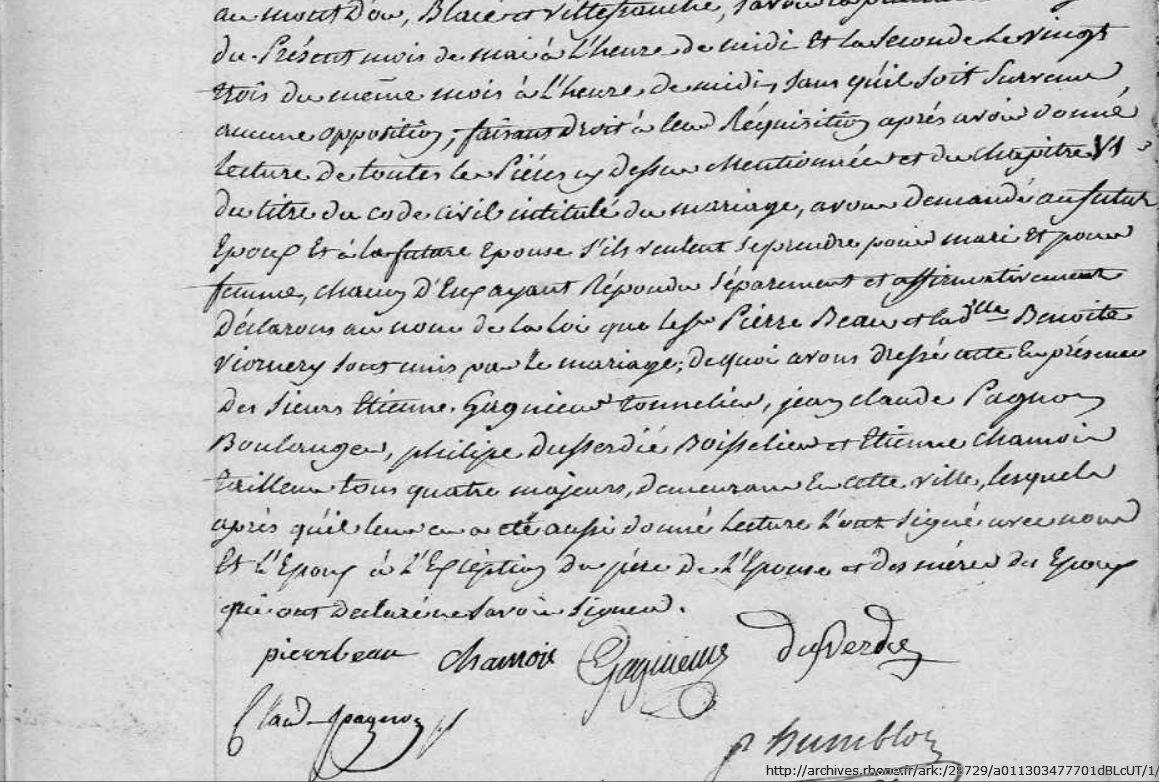 au mont D'or, Blacé et Villefranche, savoir la
du Présent mois de mai à L'heure de midi Et la Seconde Le vingt
trois du même mois à L'heure de midi, sans qu'il soit survenu
aucune opposition, faisant droit à leur Réquisition après avoir donné
lecture de toutes les Pièces cy dessus mentionnées et du chapitre VI
du titre du code civil intitulé du mariage, avons demandé au futur
Epoux Et à la future Epouse s'ils veulent se prendre pour mari Et pour
femme, chacun D'Eux ayant Répondu séparement et affirmativement
Déclarons au nom de la loi que le Sr Pierre Beau et la Dlle Benoite
Viornery sont unis par le mariage; de quoi avons dressé acte En présence
des sieurs Etienne Gagnieur tonnelier, jean claude Pagnon
Boulanger, philipe dusserdié Boisselier et Etienne Chamoin
tailleur tous quatre majeurs, demeurans En cette ville, lesquels
après qu'il leur en a été aussi donné Lecture L'ont signé avec nous
Et L'Epoux à L'Exception du père de L'Epouse et des mères des Epoux
qui ont declaré ne savoir signer.
pierre beau chamoin Gagnieur
Claud pagnon
humblot
http://archives.rhone.fr/ark:/28729/a011303477701dBLcUT/1/